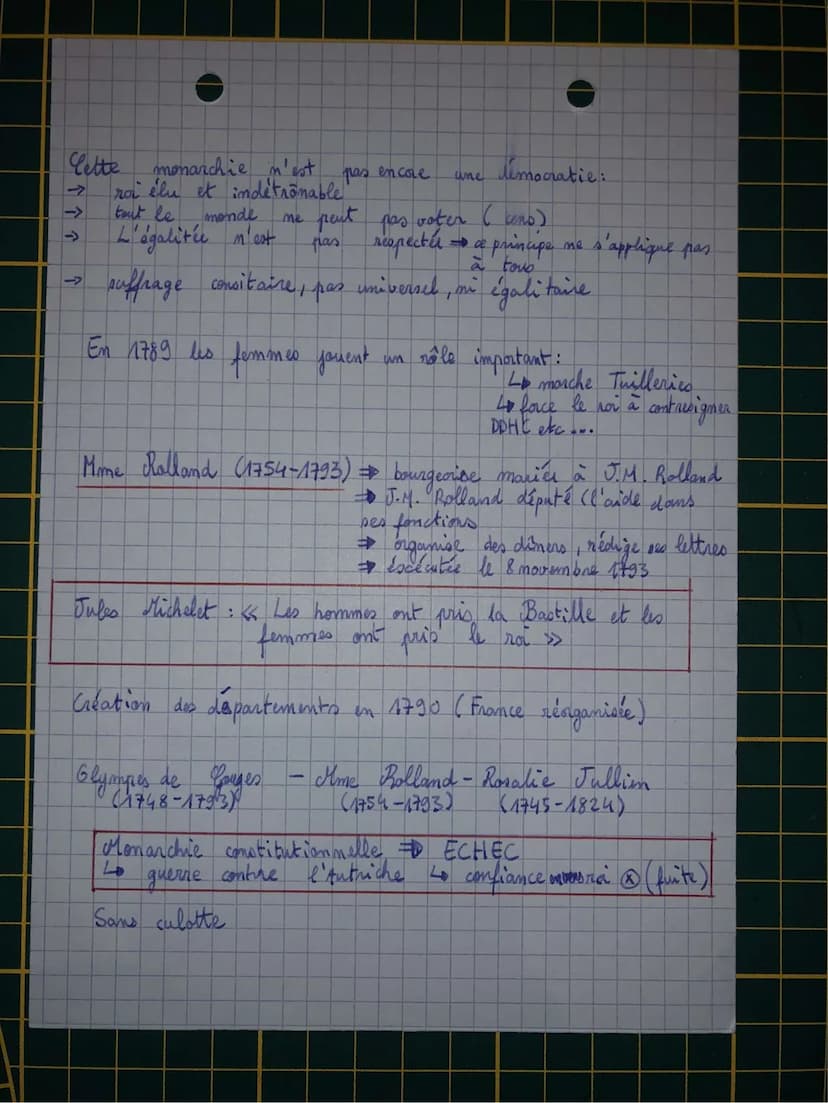 Cette monarchie n'est pas encore une démocratie :
→ roi élu et indétrônable
→ tout le monde ne peut pas voter (cens)
→ L'égalitée n'est pas respectée ⇒ ce principe ne s'applique pas
à tous
→ suffrage censitaire, pas universel, ni égalitaire
En 1789 les femmes jouent un rôle important :
↳ marche Tuilleries
↳ force le roi à contresigner
DDHC etc ...
Mme Rolland (1754-1793) ⇒ bourgeoise mariée à J.M. Rolland
⇒ J.M. Rolland député (l'aide dans
ses fonctions
⇒ organise des dîners, rédige ses lettres
⇒ éxécutée le 8 novembre 1793
Jules Michelet : « Les hommes ont pris la Bastille et les
femmes ont pris le roi »
Création des départements en 1790 (France réorganisée)
Olympes de Gouges - Mme Rolland - Rosalie Jullien
(1748-1793) (1754-1793) (1745-1824)
Monarchie constitutionnelle ⇒ ECHEC
↳ guerre contre l'Autriche ↳ confiance roi ⓧ (fuite)
Sans culotte